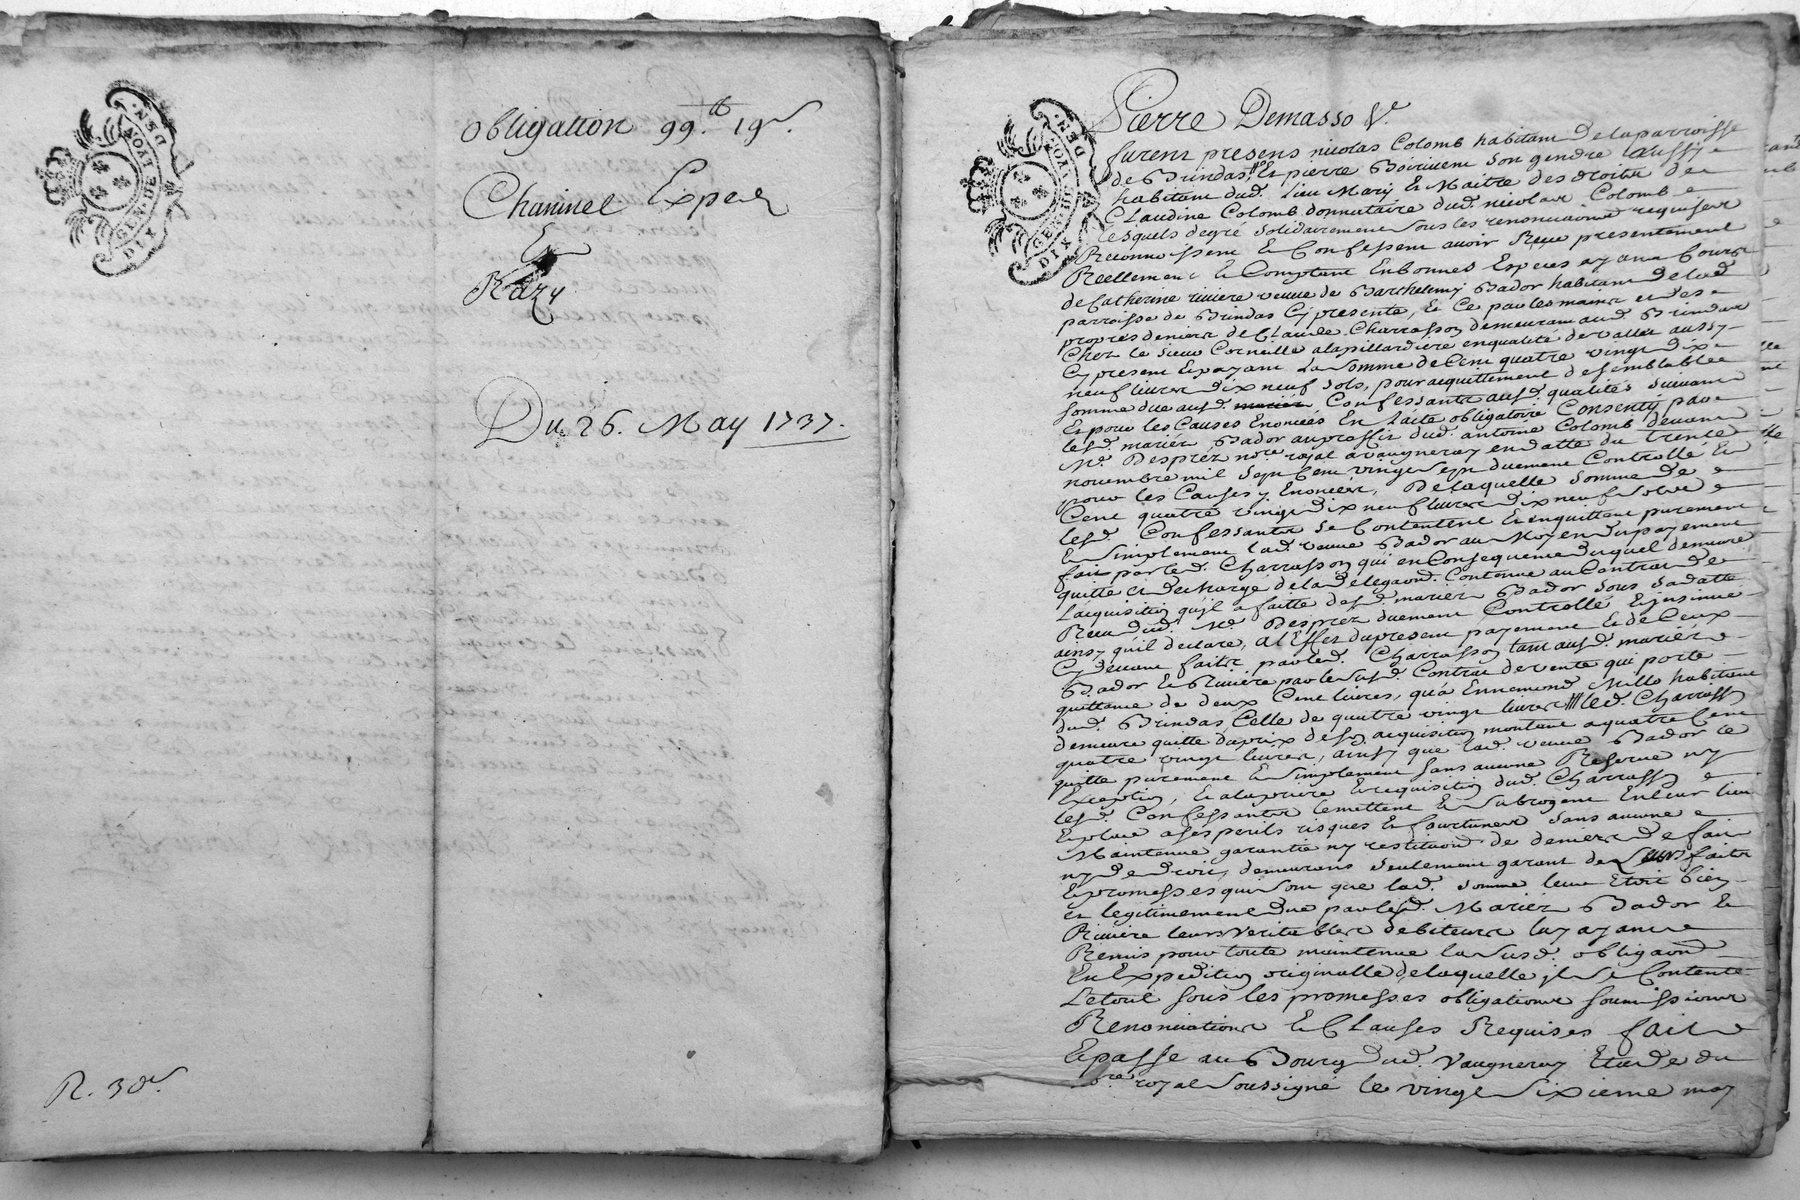 DIX
GEN. DE LYON
DEN.
obligation 99.tt 19s.
Chaninel Expedr
Et
Razy
Du 26. May 1737.
R. 30s.
DIX
GEN. DE LYON
DEN.
Pierre Demasso Ve
furent presens nicolas Colomb habitant de la parroisse
de Brindas Et pierre Boirivent son gendre aussy
habitant dud. lieu Mary Et Maitre des droits de
Claudine Colomb donnataire dud. nicolas Colomb
lesquels de gré solidairement sous les renonciations requises
Reconnoissent Et Confessent avoir Receu presentement
Reellement Et Comptant En bonnes Especes ayant Cours
de Catherine riviere veuve de Barthelemy Bador habitant de lad.
parroisse de Brindas Cy presente, Et Ce par les mains et des
propres deniers de Claude Charrasson demeurant aud. Brindas
Chez le sieur Corneille a la pillardiere en qualité de vallet aussy
Cy present Et payant La somme de Cent quatre vingt dix
neuf livres dix neuf sols, pour acquittement de semblable
somme due ausd. Confessants ausd. qualités suivant
Et pour les Causes Enoncées En L'acte obligatoire Consenty par
lesd. mariés Bador au proffit dud. antoine Colomb devant
Me. Desprez nore. royal a vaugneray en datte du trente
novembre mil sept Cent vingt sept duement Controllé Et
pour les Causes y Enoncées, De laquelle somme de
Cent quatre vingt dix neuf livres dix neuf sols
lesd. Confessants se Contentent Et en quittent purement
Et simplement lad. veuve Bador au Moyen du payement
fait par led. Charrasson qui en Consequence duquel demeure
quitte et decharge de la delegaon. Contenue au Contrat de
l'acquisition qu'il a faitte desd. mariés Bador sous sa datte
Receu dud. Me. Desprez duement Controllé Et insinué
ainsy qu'il declare, a l'Effet du present payement Et de Ceux
Cy devant faits par led. Charrasson tant ausd. mariés
Bador Et Riviere par le susd. Contrat de vente qui porte
quittance de deux Cent livres, qu'a Ennemond Millo habitant
dud. Brindas Celle de quatre vingt livres led. Charrasson
demeure quitte du prix de son acquisition montant a quatre Cent
quatre vingt livres, ainsy que lad. veuve Bador le
quitte purement Et simplement sans aucune Reserve ny
Exception, Et a la priere Et requisition dud. Charrasson
lesd. Confessants le mettent Et subrogent En leur lieu
Et place a ses perils risques Et fortunes sans aucune
Maintenue garantie ny restitution de deniers de fait
ny de droit, demeurans seulement garant de Leurs faits
Et promesses qui sont que lad. somme leur Etoit bien
et legitimement due par lesd. Mariés Bador Et
Riviere leurs veritables debiteurs luy ayant
Remis pour toute maintenue la susd. obligaon.
En Expedition originalle de laquelle il se Contente
Le tout sous les promesses obligations soumissions
Renonciations Et Clauses Requises fait
Et passé au Bourg dud. vaugneray Etude du
nore. royal soussigné le vingt sixieme may